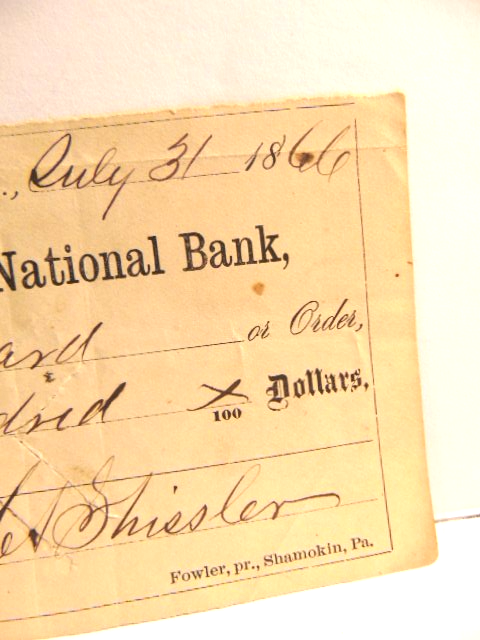 ., July 31 1866
National Bank,
ard or Order,
dred x/100 Dollars,
Shissler
Fowler, pr., Shamokin, Pa.